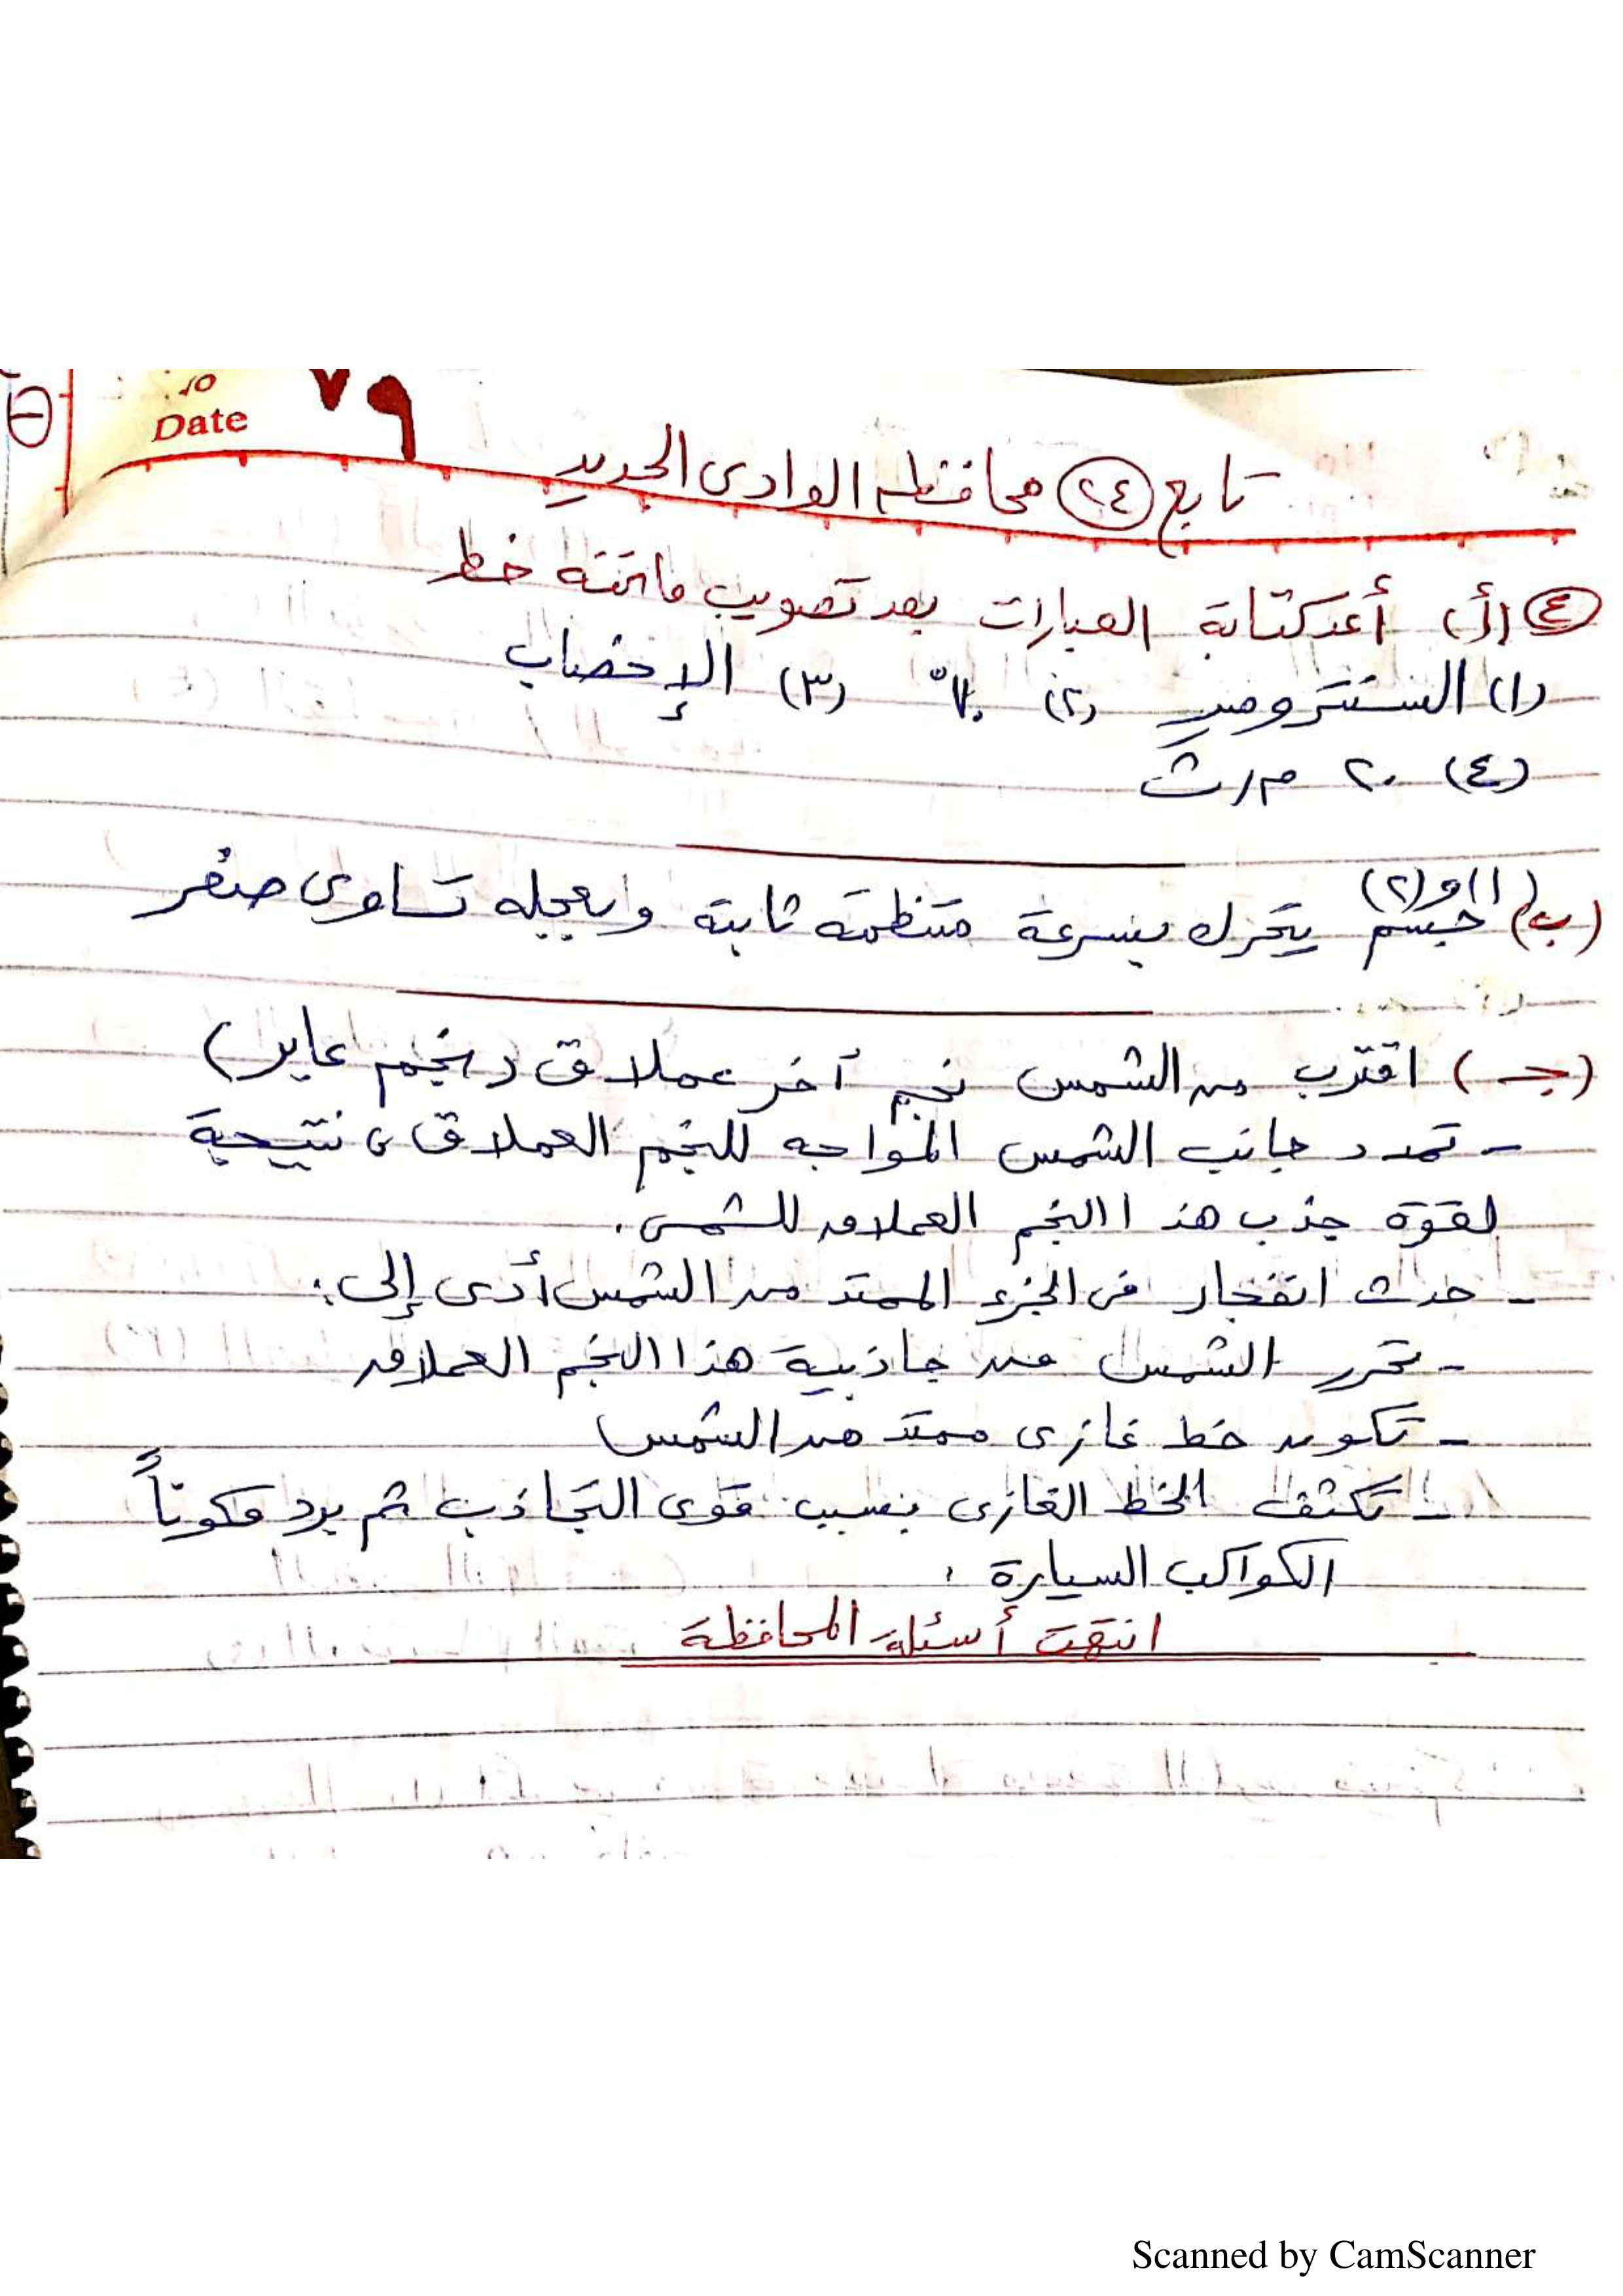 ٧٩
Date
تابع (٢٤) محافظه الوادى الجديد
(٤) (أ) أعد كتابة العبارات بعد تصويب ماتحته خط
(١) السنترومير (٢) ٧٠° (٣) الإخصاب
(٤) ٢٠ م/ث
(ب) (١)و(٢)
جسم يتحرك بسرعة منتظمة ثابتة وبعجله تساوى صفر
(جـ) اقترب من الشمس نجم آخر عملاق (نجم عابر)
- تمدد جانب الشمس المواجه للنجم العملاق، نتيجة
لقوة جذب هذا النجم العملاق للشمس.
- حدث انفجار فى الجزء الممتد من الشمس أدى إلى:
- تحرر الشمس من جاذبية هذا النجم العملاق
- تكون خط غازى ممتد من الشمس
- تكثف الخط الغازى بسبب قوى التجاذب ثم برد مكوناً
الكواكب السيارة.
انتهت أسئلة المحافظة
Scanned by CamScanner